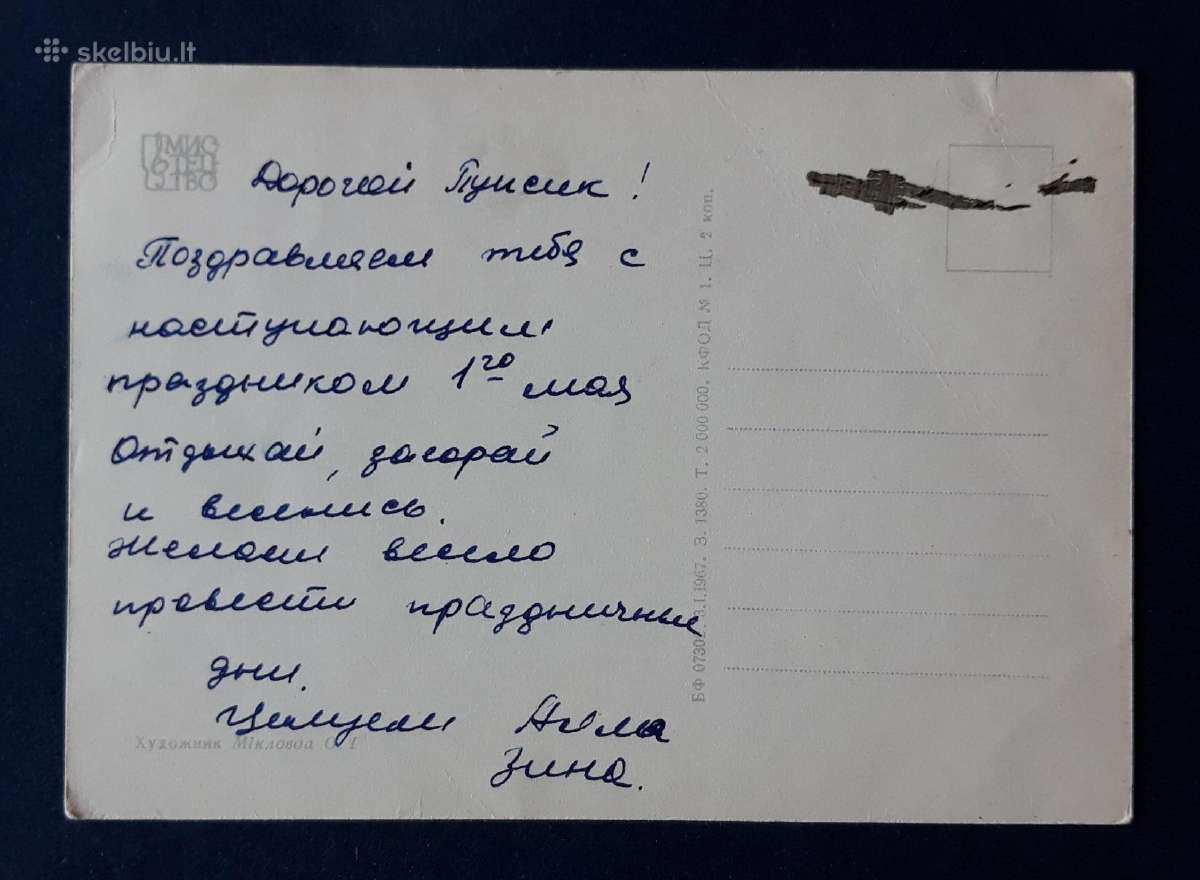 skelbiu.lt
МИС
ТЕЦ
ТВО
Дорогой Пупсик!
Поздравляем тебя с
наступающим
праздником 1го мая
Отдыхай, загорай
и веселись.
Желаем весело
провести праздничные
дни.
Целуем
Зина.
Художник Мікловда О. І
БФ 0730 .I.1967. З. 1380. Т. 2 000 000. КФОД № 1. Ц. 2 коп.